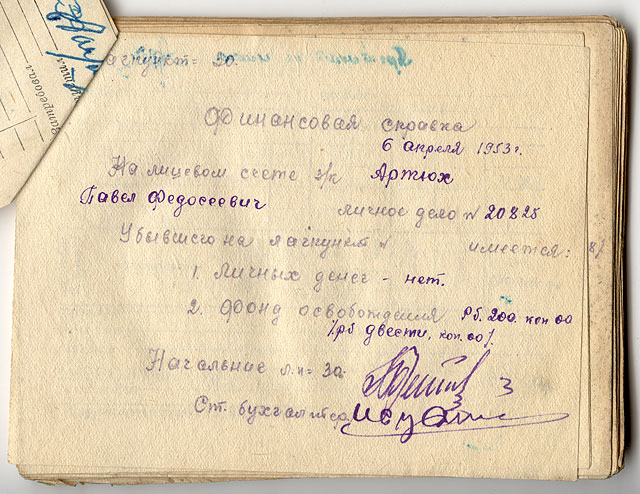 затребовал
Лагпункт = 30.
Финансовая справка
6 апреля 1953 г.
На лицевом счете з/к Артюх
Павел Федосеевич личное дело N 20825
Убывшего на лагпункт N имеется:
1. Личных денег - нет.
2. Фонд освобождения Рб. 200. коп 00
/рб двести, коп. 00/.
Начальник л.п=30
Ст. бухгалтер